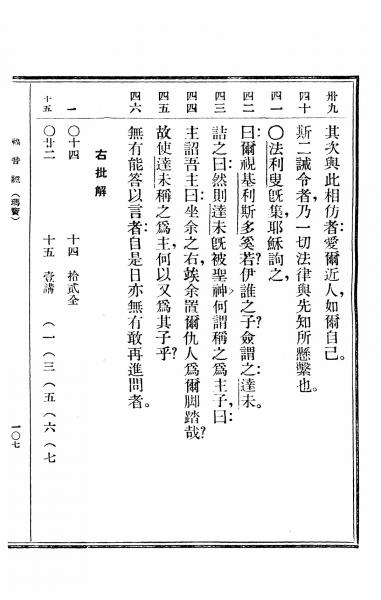 卅九 其次與此相仿者:愛爾近人,如爾自己。
四十 斯二誡令者,乃一切法律與先知所懸繫也。
四一 〇法利叟旣集,耶穌詢之,
四二 曰:爾視基利斯多奚若?伊誰之子?僉謂之:達未。
四三 詰之曰:然則達未旣被聖神,何謂稱之爲主子,曰:
四四 主詔吾主曰:坐余之右,竢余置爾仇人爲爾脚踏哉?
四五 故使達未稱之爲主,何以又爲其子乎?
四六 無有能答以言者:自是日亦無有敢再進問者。
右批解
一 〇十四 十四 拾貳全
十五 〇廿二 十五 壹講 (一(三(五(六(七
福音經(瑪竇)
一〇七